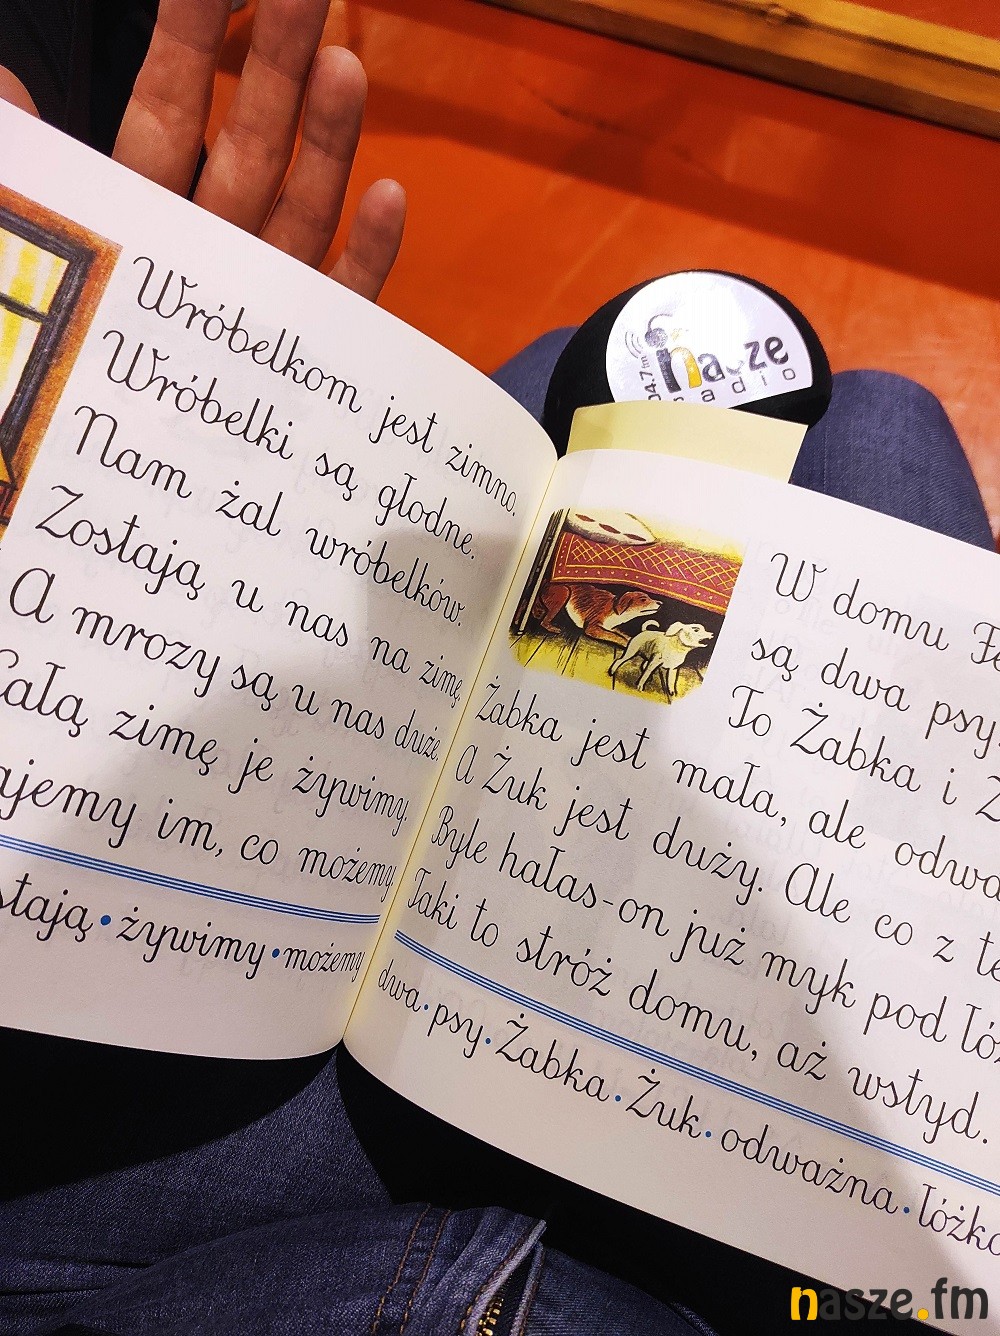 Wróbelkom jest zimno.
Wróbelki są głodne.
Nam żal wróbelków.
Zostają u nas na zimę.
A mrozy są u nas duże.
Całą zimę je żywimy.
im, co możemy.
żywimy • możemy
W domu
są dwa psy.
To Żabka i
Żabka jest mała, ale
A Żuk jest duży. Ale co z
Byle hałas-on już myk pod
Taki to stróż domu, aż wstyd.
dwa • psy • Żabka • Żuk • odważna •
nasze
radio
nasze.fm